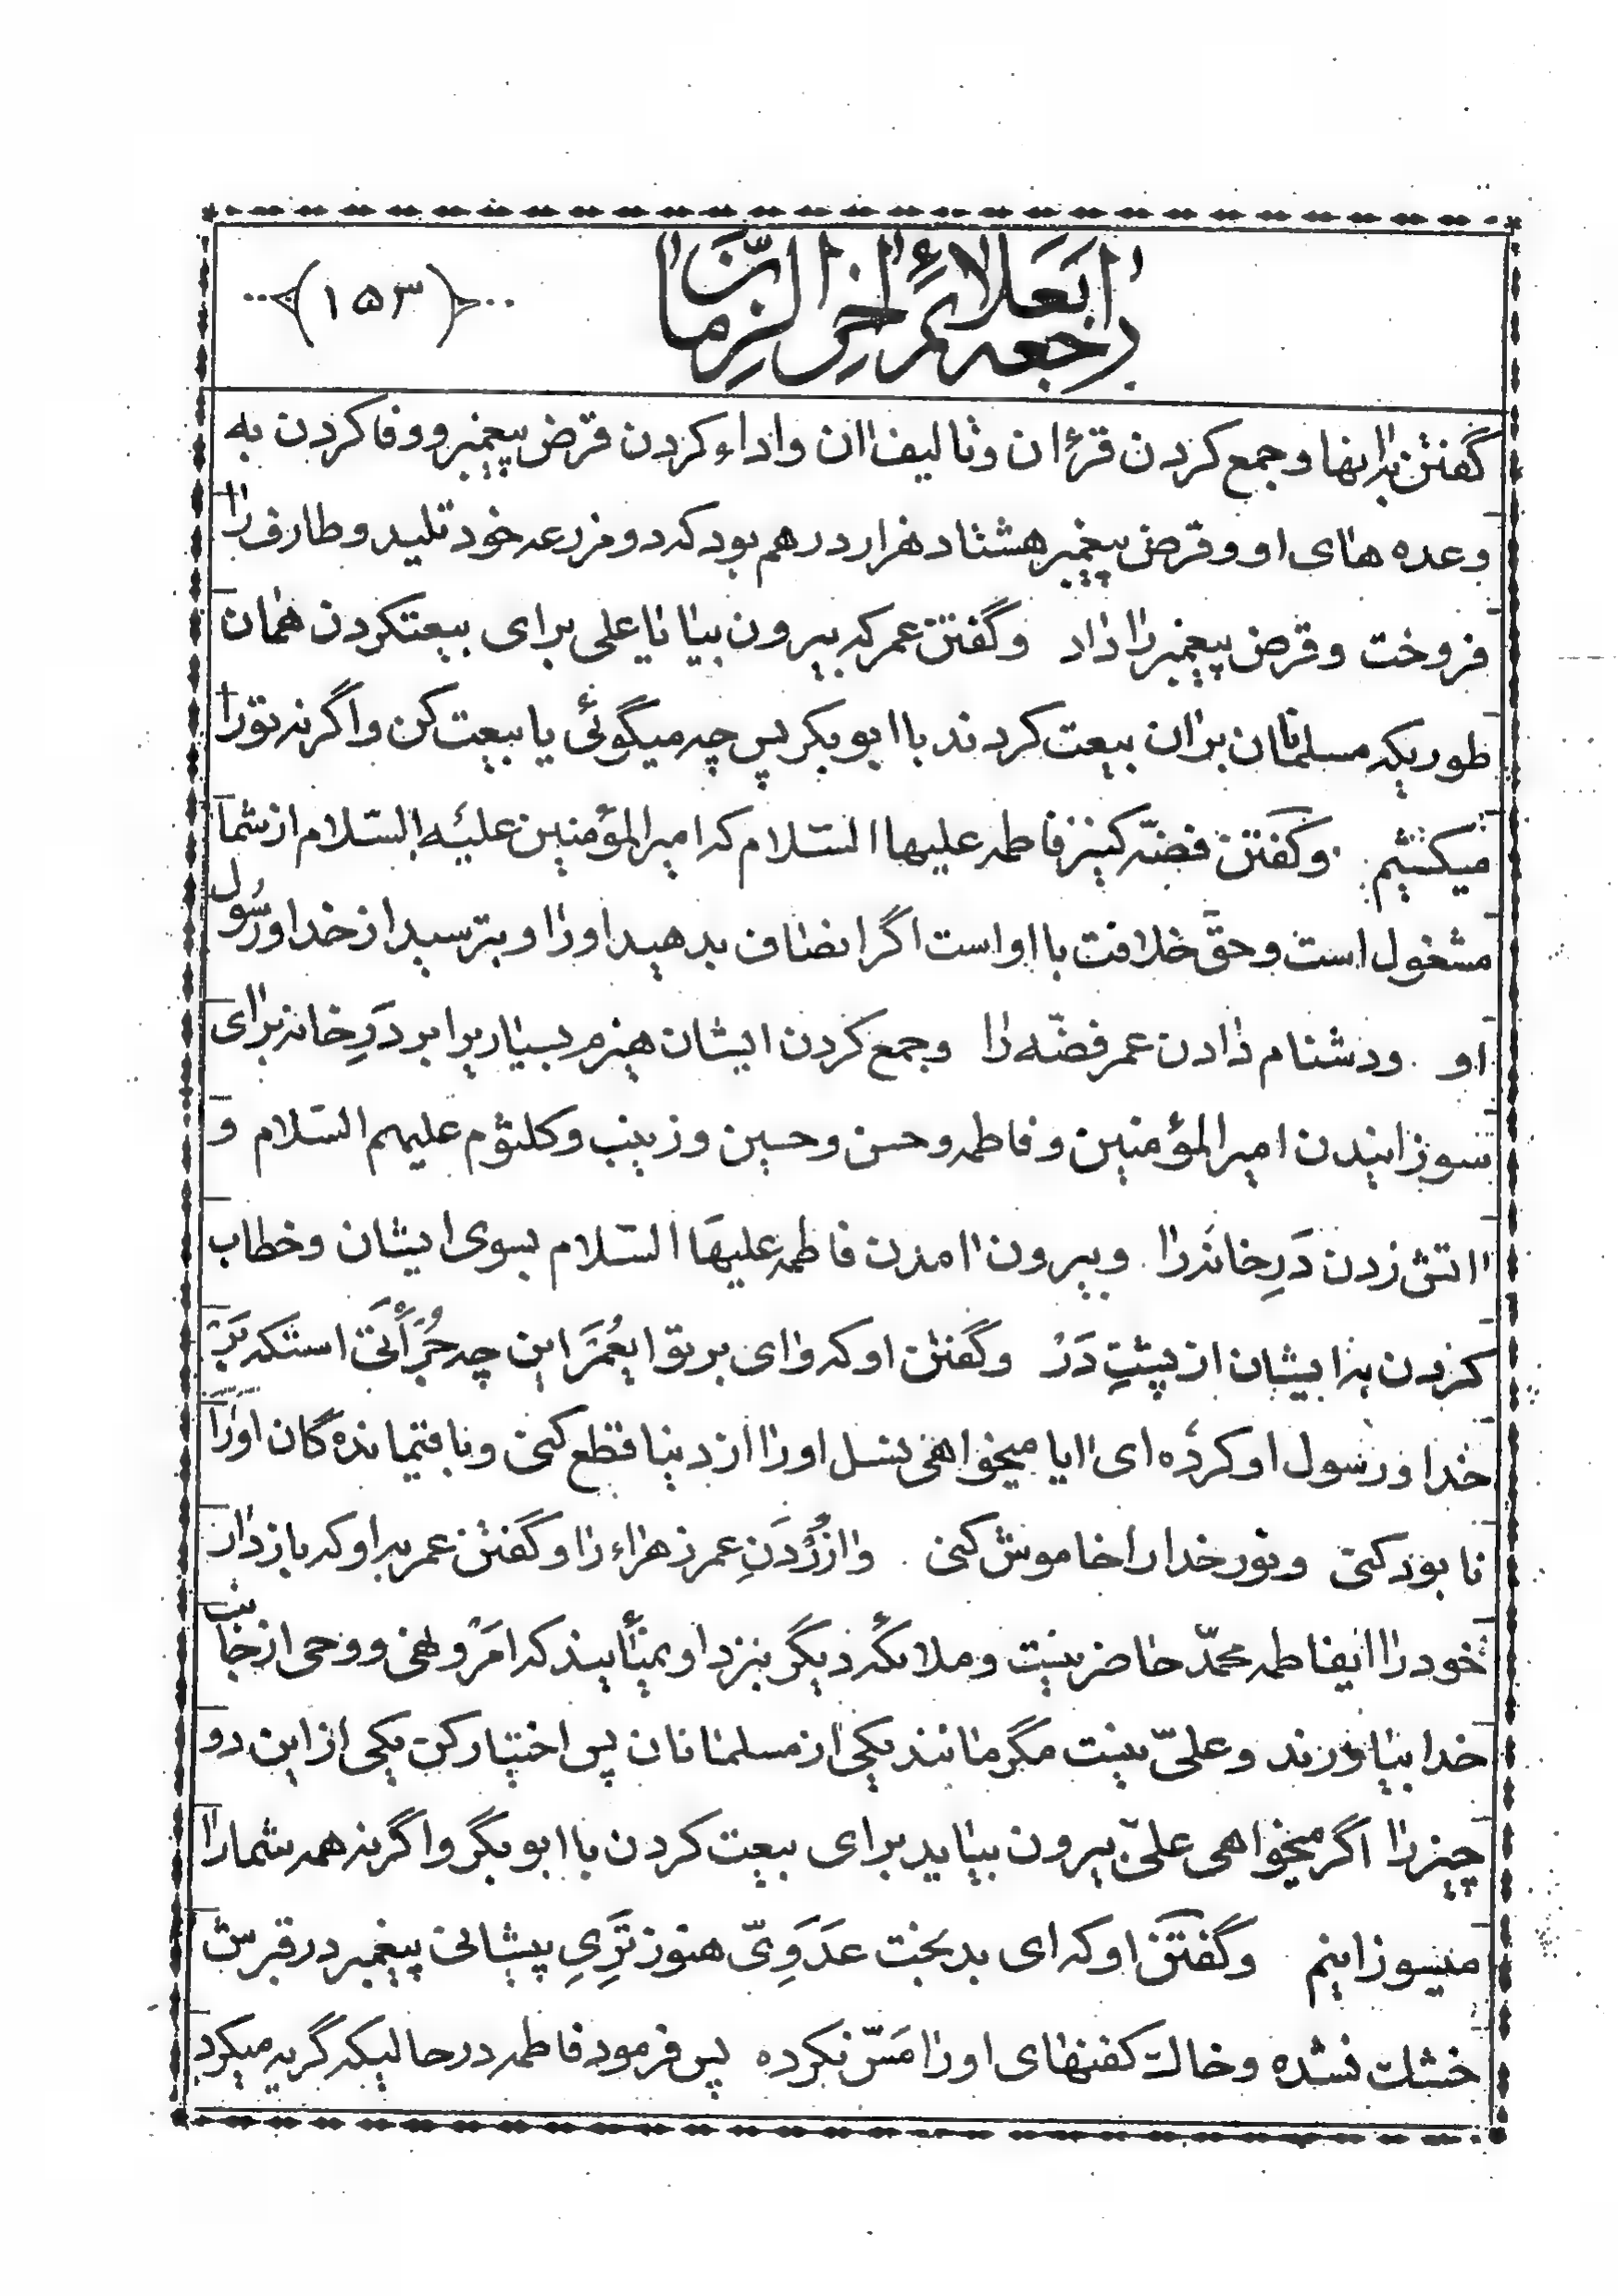 در علائم اخر الزمان
رجعه
(۱۵۳)
گفتن به انها و جمع کردن قرءان و تالیف اان و اداء کردن قرض پیغمبر و وفا کردن به
وعده های او و قرض پیغمبر هشتاد هزار درهم بود که دو مزرعه خود تلید و طارف را
فروخت و قرض پیغمبر را داد و گفتن عمر که بیرون بیا یا علی برای بیعتکردن همان
طوریکه مسلمانان بر ان بیعت کردند با ابو بکر پس چه میگوئی یا بیعت کن و اگر نه تو را
میکشیم و گفتن فضّه کنیز فاطمه علیها السّلام که امیر المؤمنین علیه السّلام از شما
مشغول است و حقّ خلافت با او است اگر انصاف بدهید او را و بترسید از خدا و رسول
او و دشنام دادن عمر فضّه را و جمع کردن ایشان هیزم بسیار برابر دَرِ خانه برای
سوزانیدن امیر المؤمنین و فاطمه و حسن و حسین و زینب و کلثوم علیهم السّلام و
ااتش زدن دَرِ خانه را و بیرون اامدن فاطمه علیهَا السّلام بسوی ایشان و خطاب
کردن به ایشان از پشتِ دَرْ و گفتن او که وای بر تو ایعُمَرْ این چه جُرْأَتی استکه بَرْ
خدا و رسول او کرده ای اایا میخواهی نسل او را از دنیا قطع کنی و باقیمانده گان او را
نابود کنی و نور خدا را خاموش کنی و اازُرْدَنِ عمر زهراء را و گفتن عمر به او که باز دار
خود را ایفاطمه محمّد حاضر نیست و ملائکه دیگر بنزد او نمیاایند که امَرْ و نهی و وحی از جانب
خدا بیاورند و علیّ نیست مگر مانند یکی از مسلمانان پس اختیار کن یکی از این دو
چیز را اگر میخواهی علیّ بیرون بیاید برای بیعت کردن با ابو بکر و اگر نه همه شما را
میسوزانیم و گفتَنْ او که ای بدبخت عَدَوِیّ هنوز تَرِیِ پیشانی پیغمبر در قبرش
خشک نشده و خاک کفنهای او را مَسّ نکرده پس فرمود فاطمه در حالیکه گریه میکرد